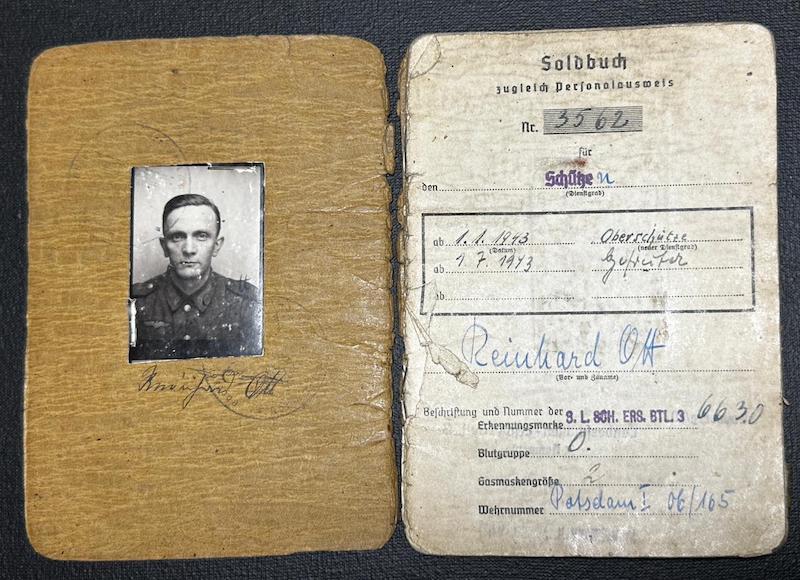 Reinhard Ott
Soldbuch
zugleich Personalausweis
Nr. 3562
für
den Schützen
(Dienstgrad)
ab 1.1.1943 Oberschütze
(Datum) (neuer Dienstgrad)
ab 1.7.1943 Gefreiter
ab
Reinhard Ott
(Vor- und Zuname)
Beschriftung und Nummer der
Erkennungsmarke S. L. SCH. ERS. BTL. 3 6630
Blutgruppe O.
Gasmaskengröße 2
Wehrnummer Potsdam I 06/165